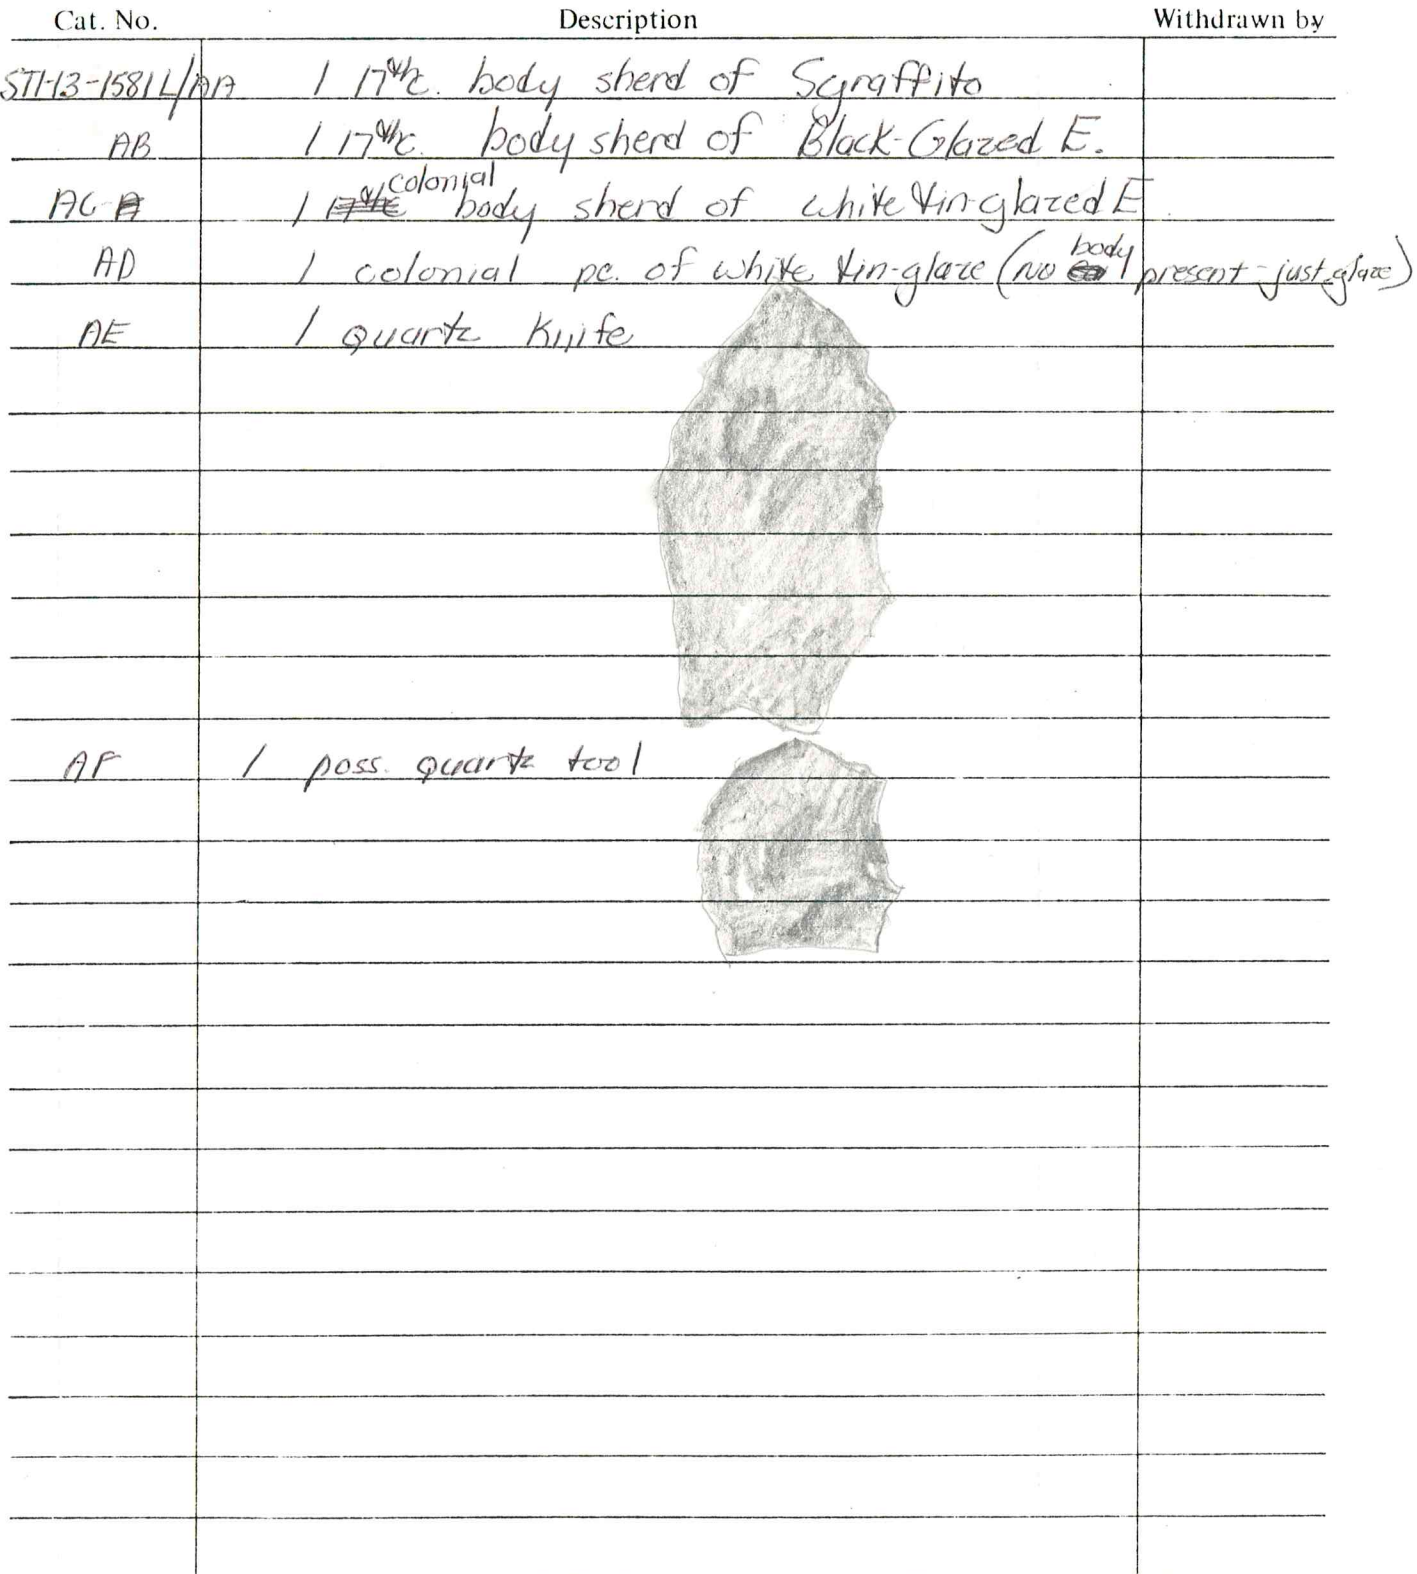 Cat. No. Description Withdrawn by
ST1-13-1581L/AA 1 17th/c. body sherd of Sgraffito
AB 1 17th/c. body sherd of Black-Glazed E.
AC 1 colonial body sherd of white tin-glazed E
AD 1 colonial pc. of white tin-glaze (no body present - just glaze)
AE 1 quartz Knife
AF 1 poss. quartz tool